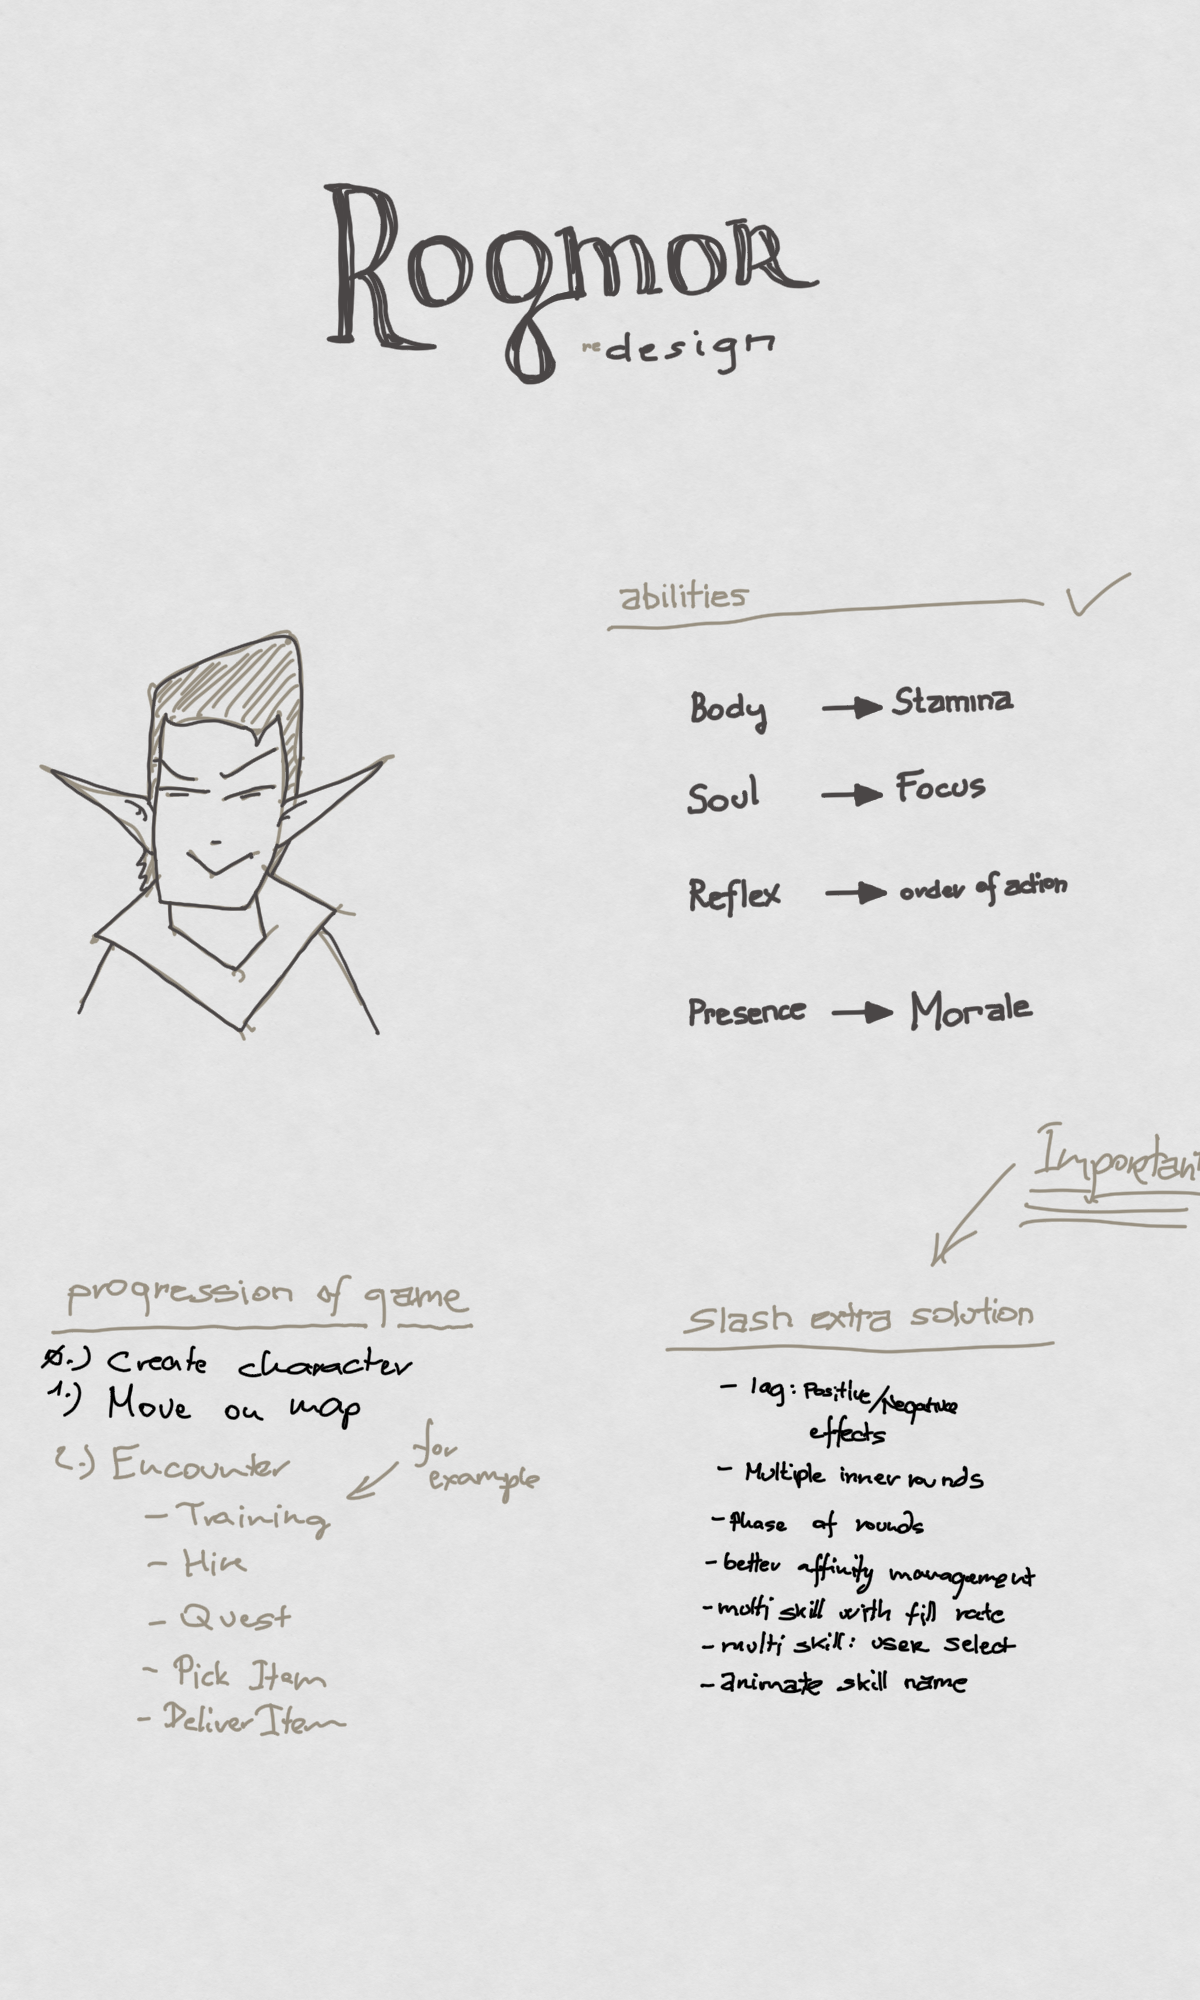 Rogmor
redesign
abilities
Body → Stamina
Soul → Focus
Reflex → order of action
Presence → Morale
Important
progression of game
0.) Create character
1.) Move on map
2.) Encounter
for
example
- Training
- Hire
- Quest
- Pick Item
- Deliver Item
Slash extra solution
- log: Positive/Negative
effects
- Multiple inner rounds
- Phase of rounds
- better affinity management
- multi skill with fill rate
- multi skill: user select
- animate skill name